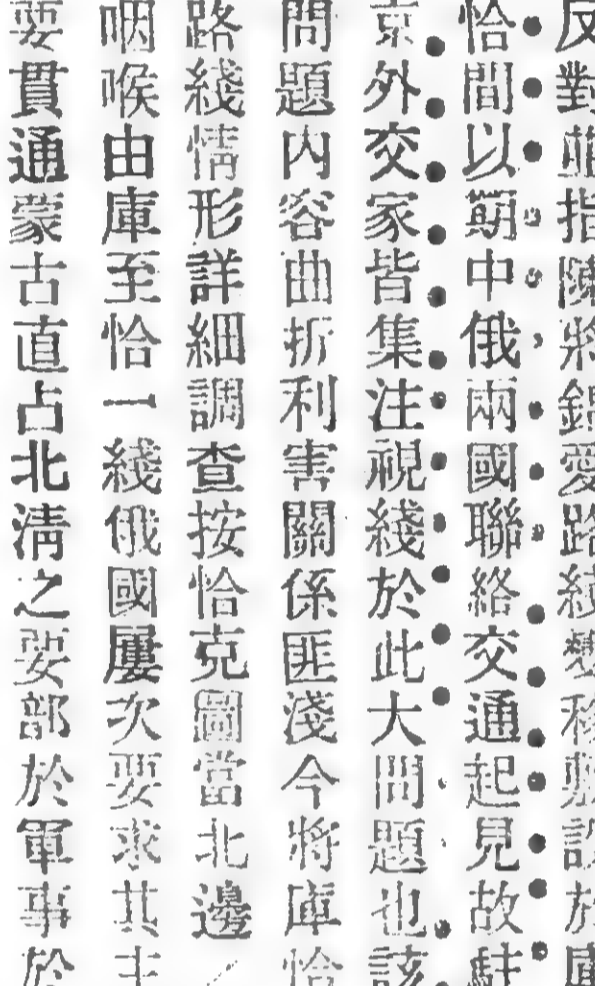 反對並指陳將錦愛路綫變移敷設於庫
恰間以期中俄兩國聯絡交通起見故駐
京外交家皆集注視綫於此大問題也該
問題內容曲折利害關係匪淺今將庫恰
路綫情形詳細調查按恰克圖當北邊
咽喉由庫至恰一綫俄國屢次要求其主
要貫通蒙古直占北清之要部於軍事於